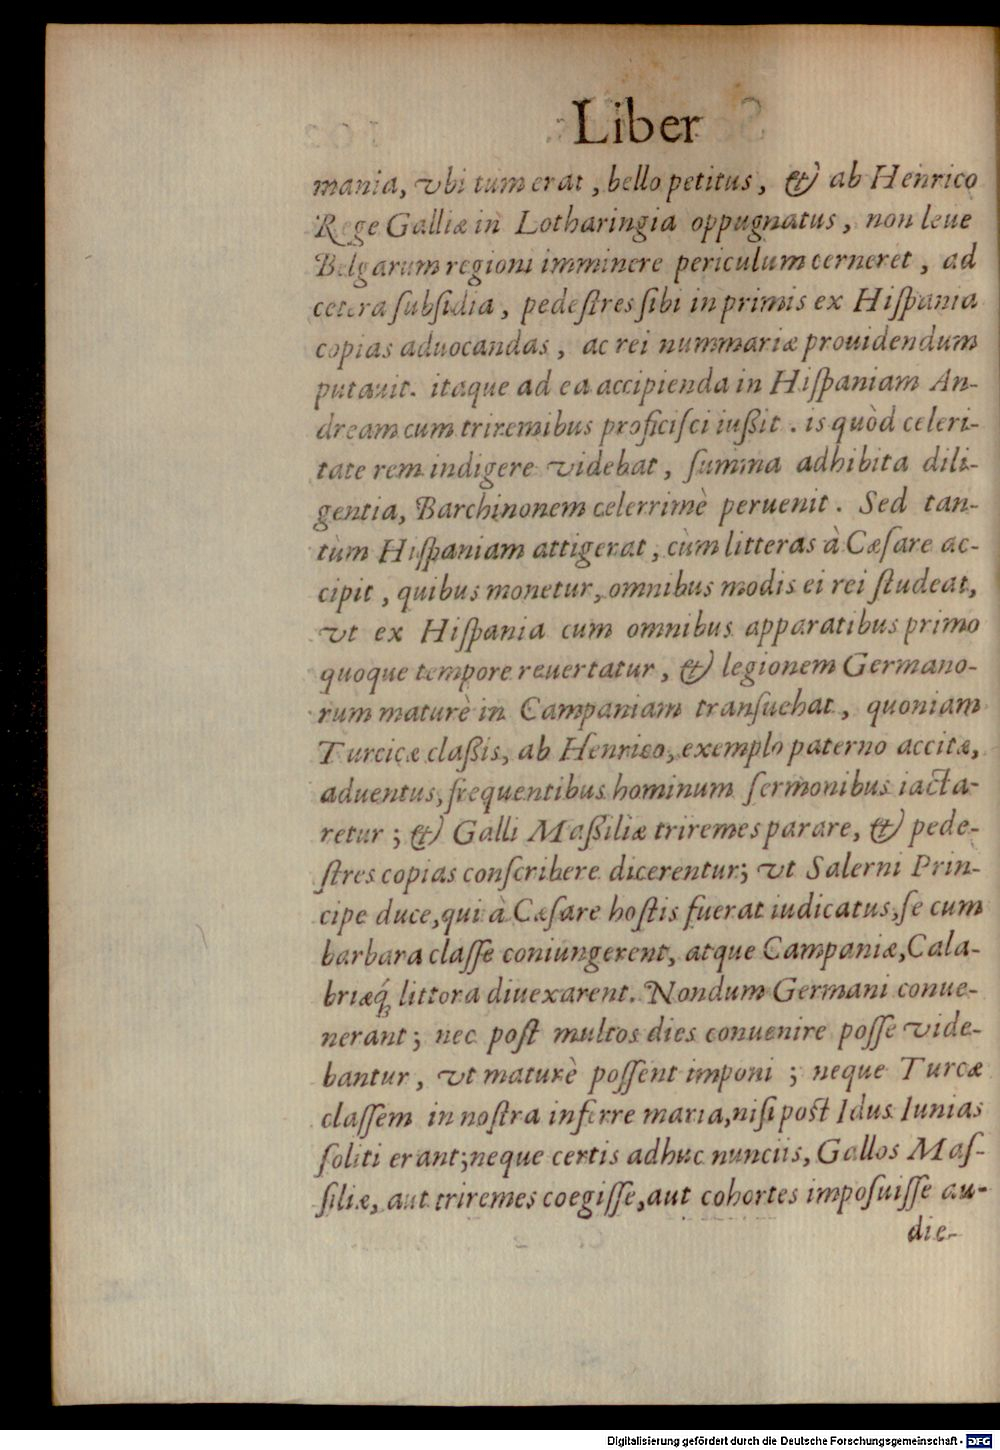 Liber
mania, vbi tum erat, bello petitus, & ab Henrico
Rege Galliæ in Lotharingia oppugnatus, non leue
Belgarum regioni imminere periculum cerneret, ad
cetera ſubſidia, pedeſtres ſibi in primis ex Hiſpania
copias aduocandas, ac rei nummariæ prouidendum
putauit. itaque ad ea accipienda in Hiſpaniam An-
dream cum triremibus proficiſci iußit. is quòd celeri-
tate rem indigere videbat, ſumma adhibita dili-
gentia, Barchinonem celerrimè peruenit. Sed tan-
tùm Hiſpaniam attigerat, cùm litteras à Cæſare ac-
cipit, quibus monetur, omnibus modis ei rei ſtudeat,
vt ex Hiſpania cum omnibus apparatibus primo
quoque tempore reuertatur, & legionem Germano-
rum maturè in Campaniam tranſuehat, quoniam
Turcicæ claßis, ab Henrico, exemplo paterno accitæ,
aduentus, frequentibus hominum ſermonibus iacta-
retur; & Galli Maßiliæ triremes parare, & pede-
ſtres copias conſcribere dicerentur; vt Salerni Prin-
cipe duce, qui à Cæſare hoſtis fuerat iudicatus, ſe cum
barbara claſſe coniungerent, atque Campaniæ, Cala-
briæq́; littora diuexarent. Nondum Germani conue-
nerant; nec poſt multos dies conuenire poſſe vide-
bantur, vt maturè poſſent imponi; neque Turcæ
claſſem in noſtra inferre maria, niſi poſt Idus Iunias
ſoliti erant; neque certis adhuc nunciis, Gallos Maſ-
ſiliæ, aut triremes coegiſſe, aut cohortes impoſuiſſe au-
die-
Digitalisierung gefördert durch die Deutsche Forschungsgemeinschaft - DFG